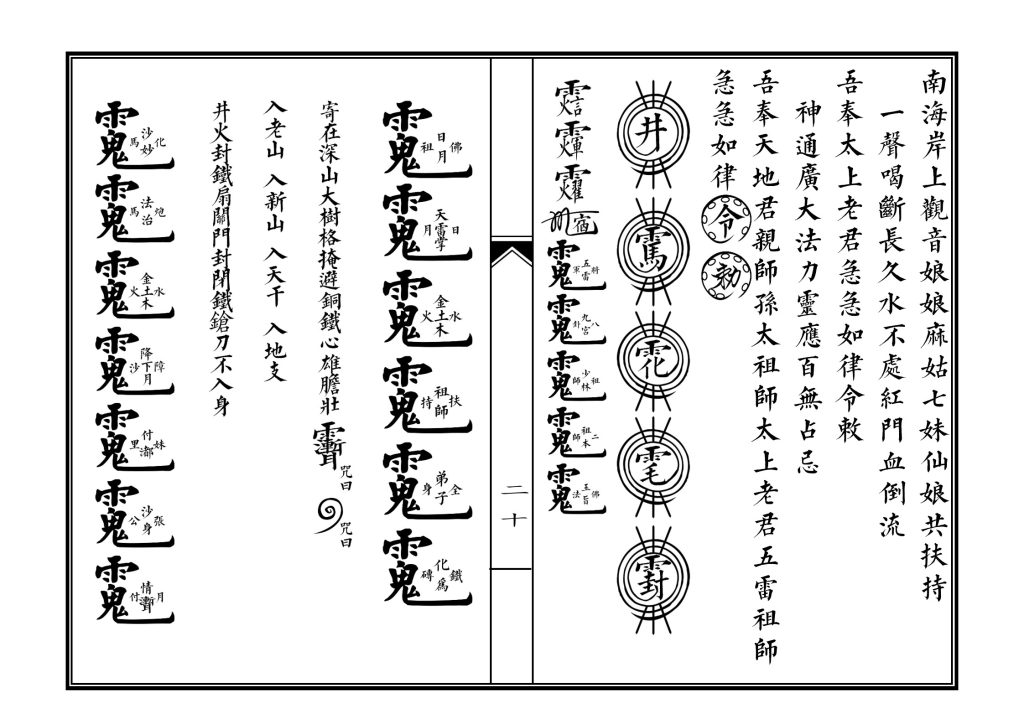 南海岸上觀音娘娘麻姑七妹仙娘共扶持
一聲喝斷長久水不處紅門血倒流
吾奉太上老君急急如律令敕
神通廣大法力靈應百無占忌
吾奉天地君親師孫太祖師太上老君五雷祖師
急急如律
令
井
封
宿
五雷將軍
九宮八卦
少林祖師
二祖本師
玉旨佛法
二十
日月佛祖
天雷掌日月
金土木水火
祖師扶持
弟子全身
化為鐵磚
寄在深山大樹格掩避銅鐵心雄膽壯
咒曰
咒曰
入老山 入新山 入天干 入地支
井火封鐵扇關門封閉鐵鎗刀不入身
沙妙化馬
法治炮馬
金土木水火
降下月障沙
付妹里
沙身張公
情月付